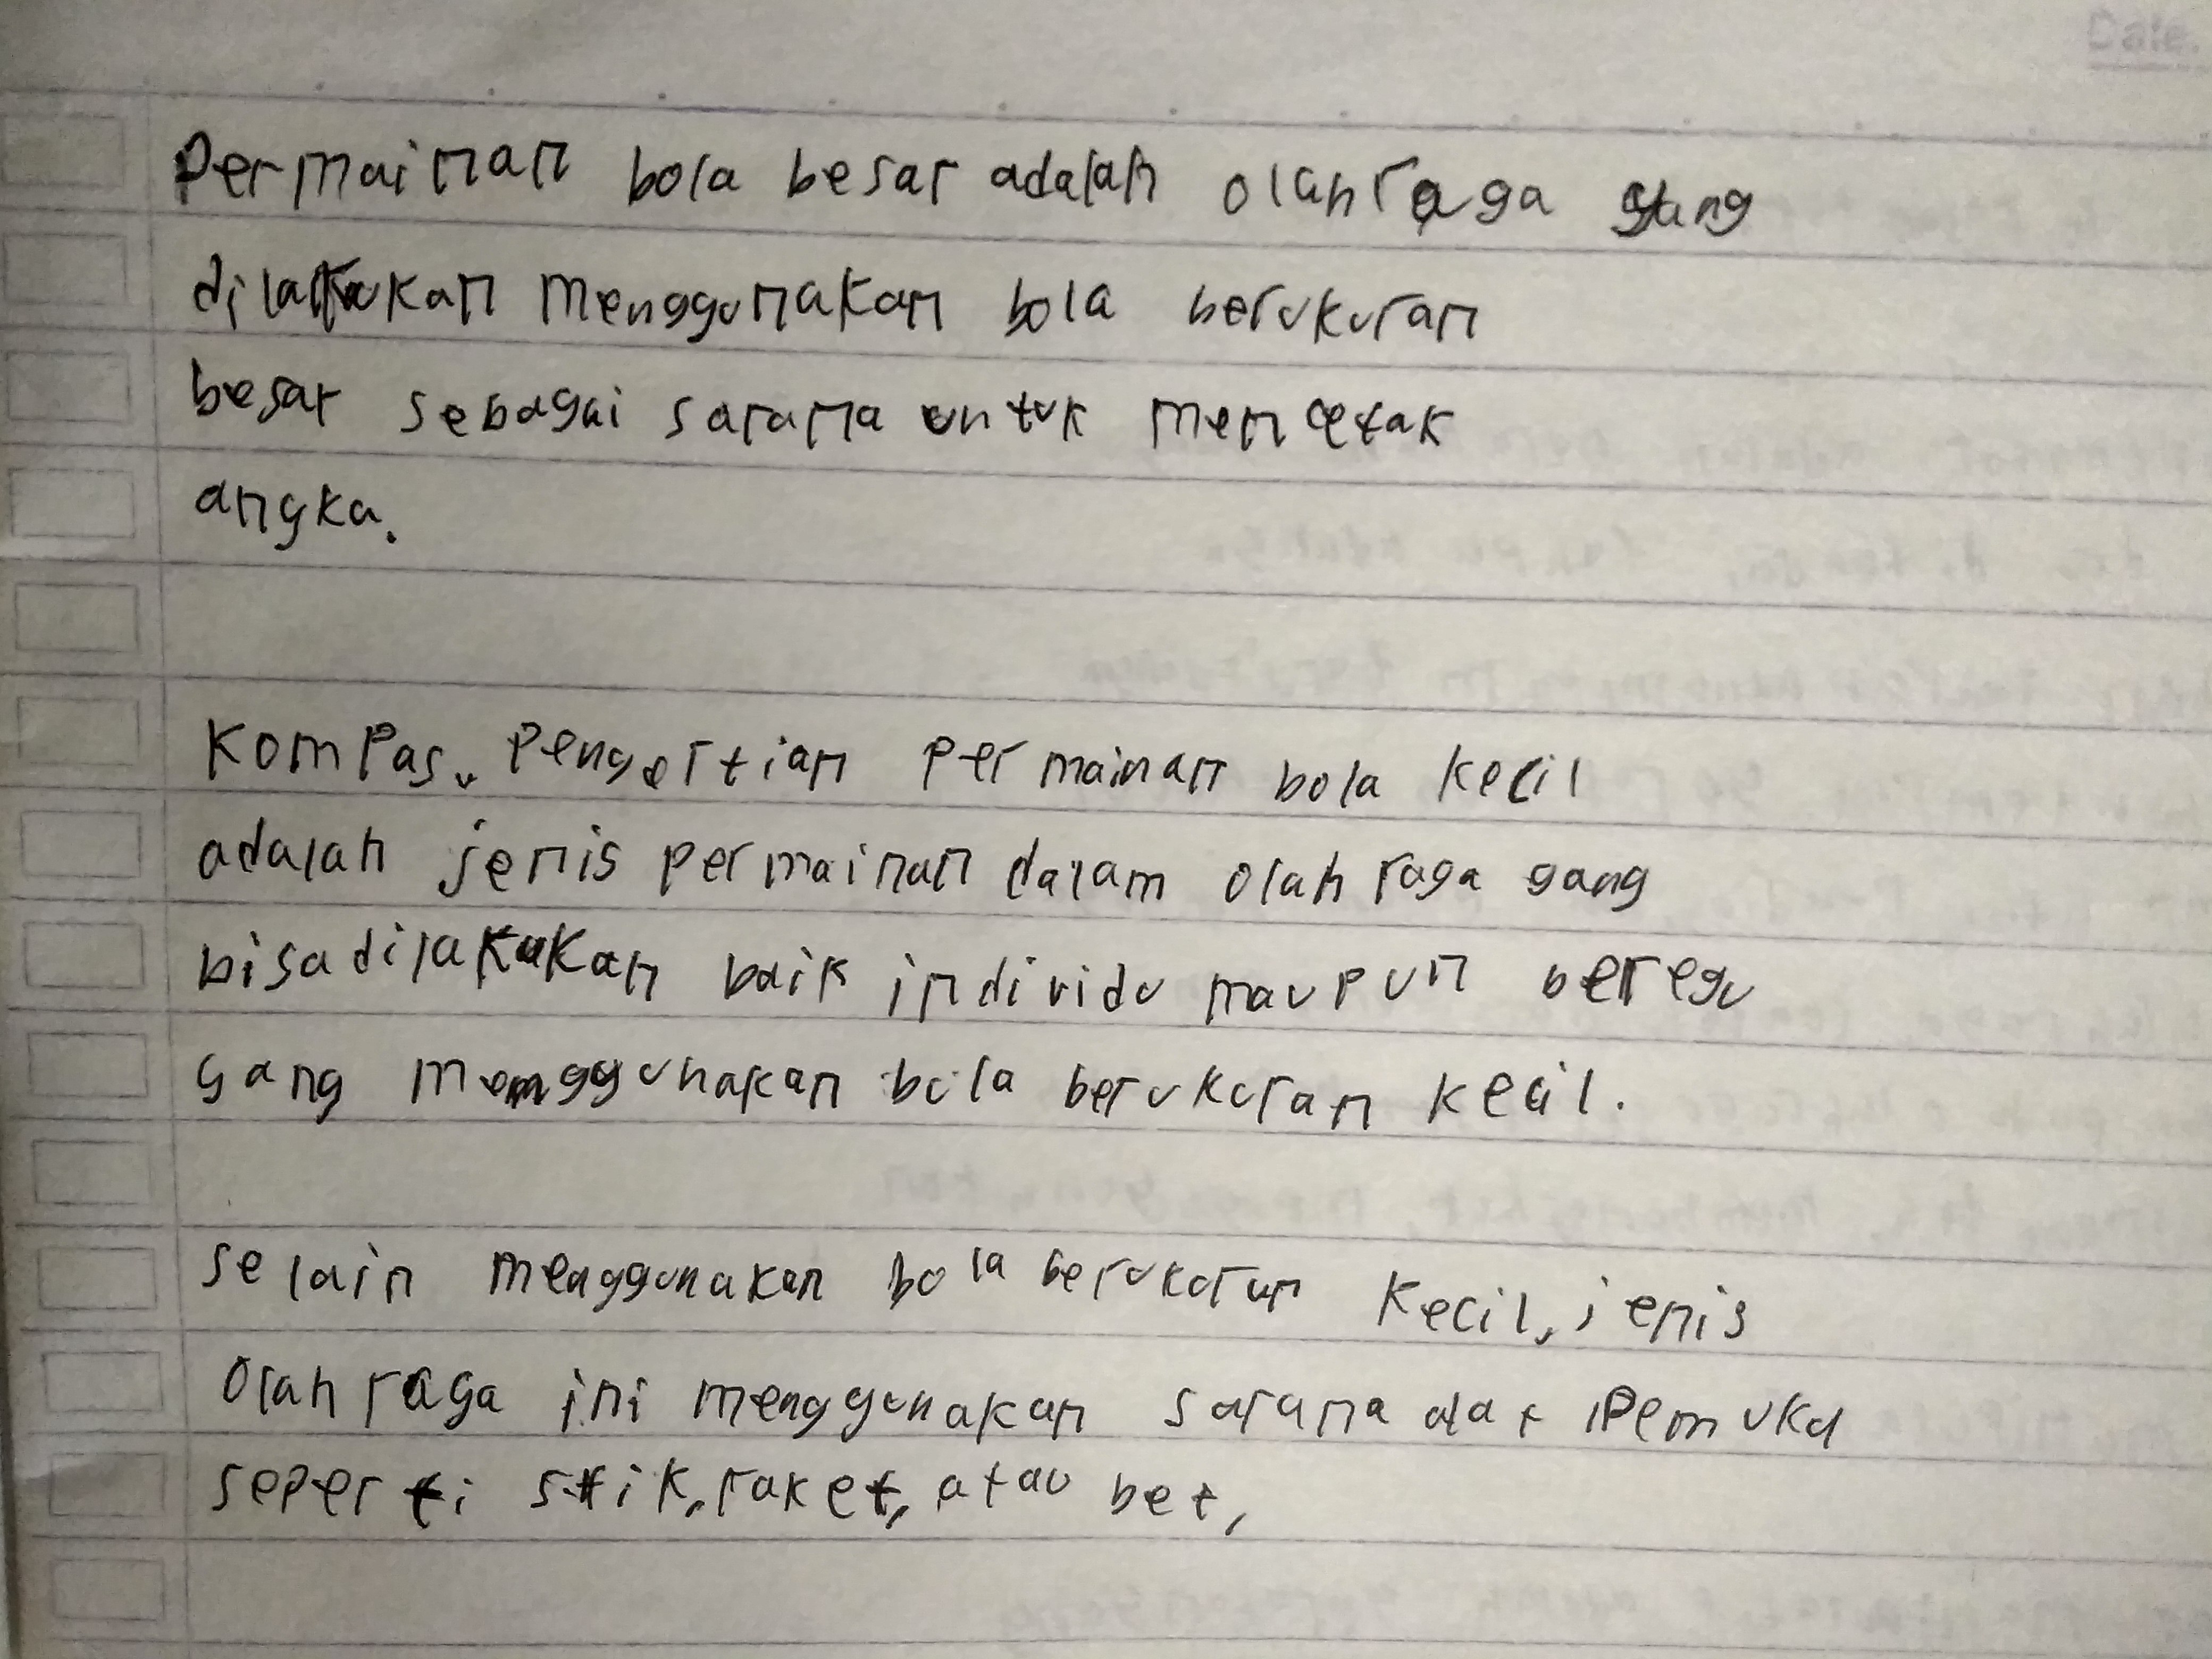 Date.
Permainan bola besar adalah olahraga yang
dilakukan menggunakan bola berukuran
besar sebagai sarana untuk mencetak
angka.
Kompas, Pengertian Permainan bola kecil
adalah jenis permainan dalam olahraga yang
bisa dilakukan baik individu maupun beregu
yang menggunakan bola berukuran kecil.
selain menggunakan bola berukuran kecil, jenis
Olahraga ini menggunakan sarana dat Pemuka
seperti stik, raket, atau bet,